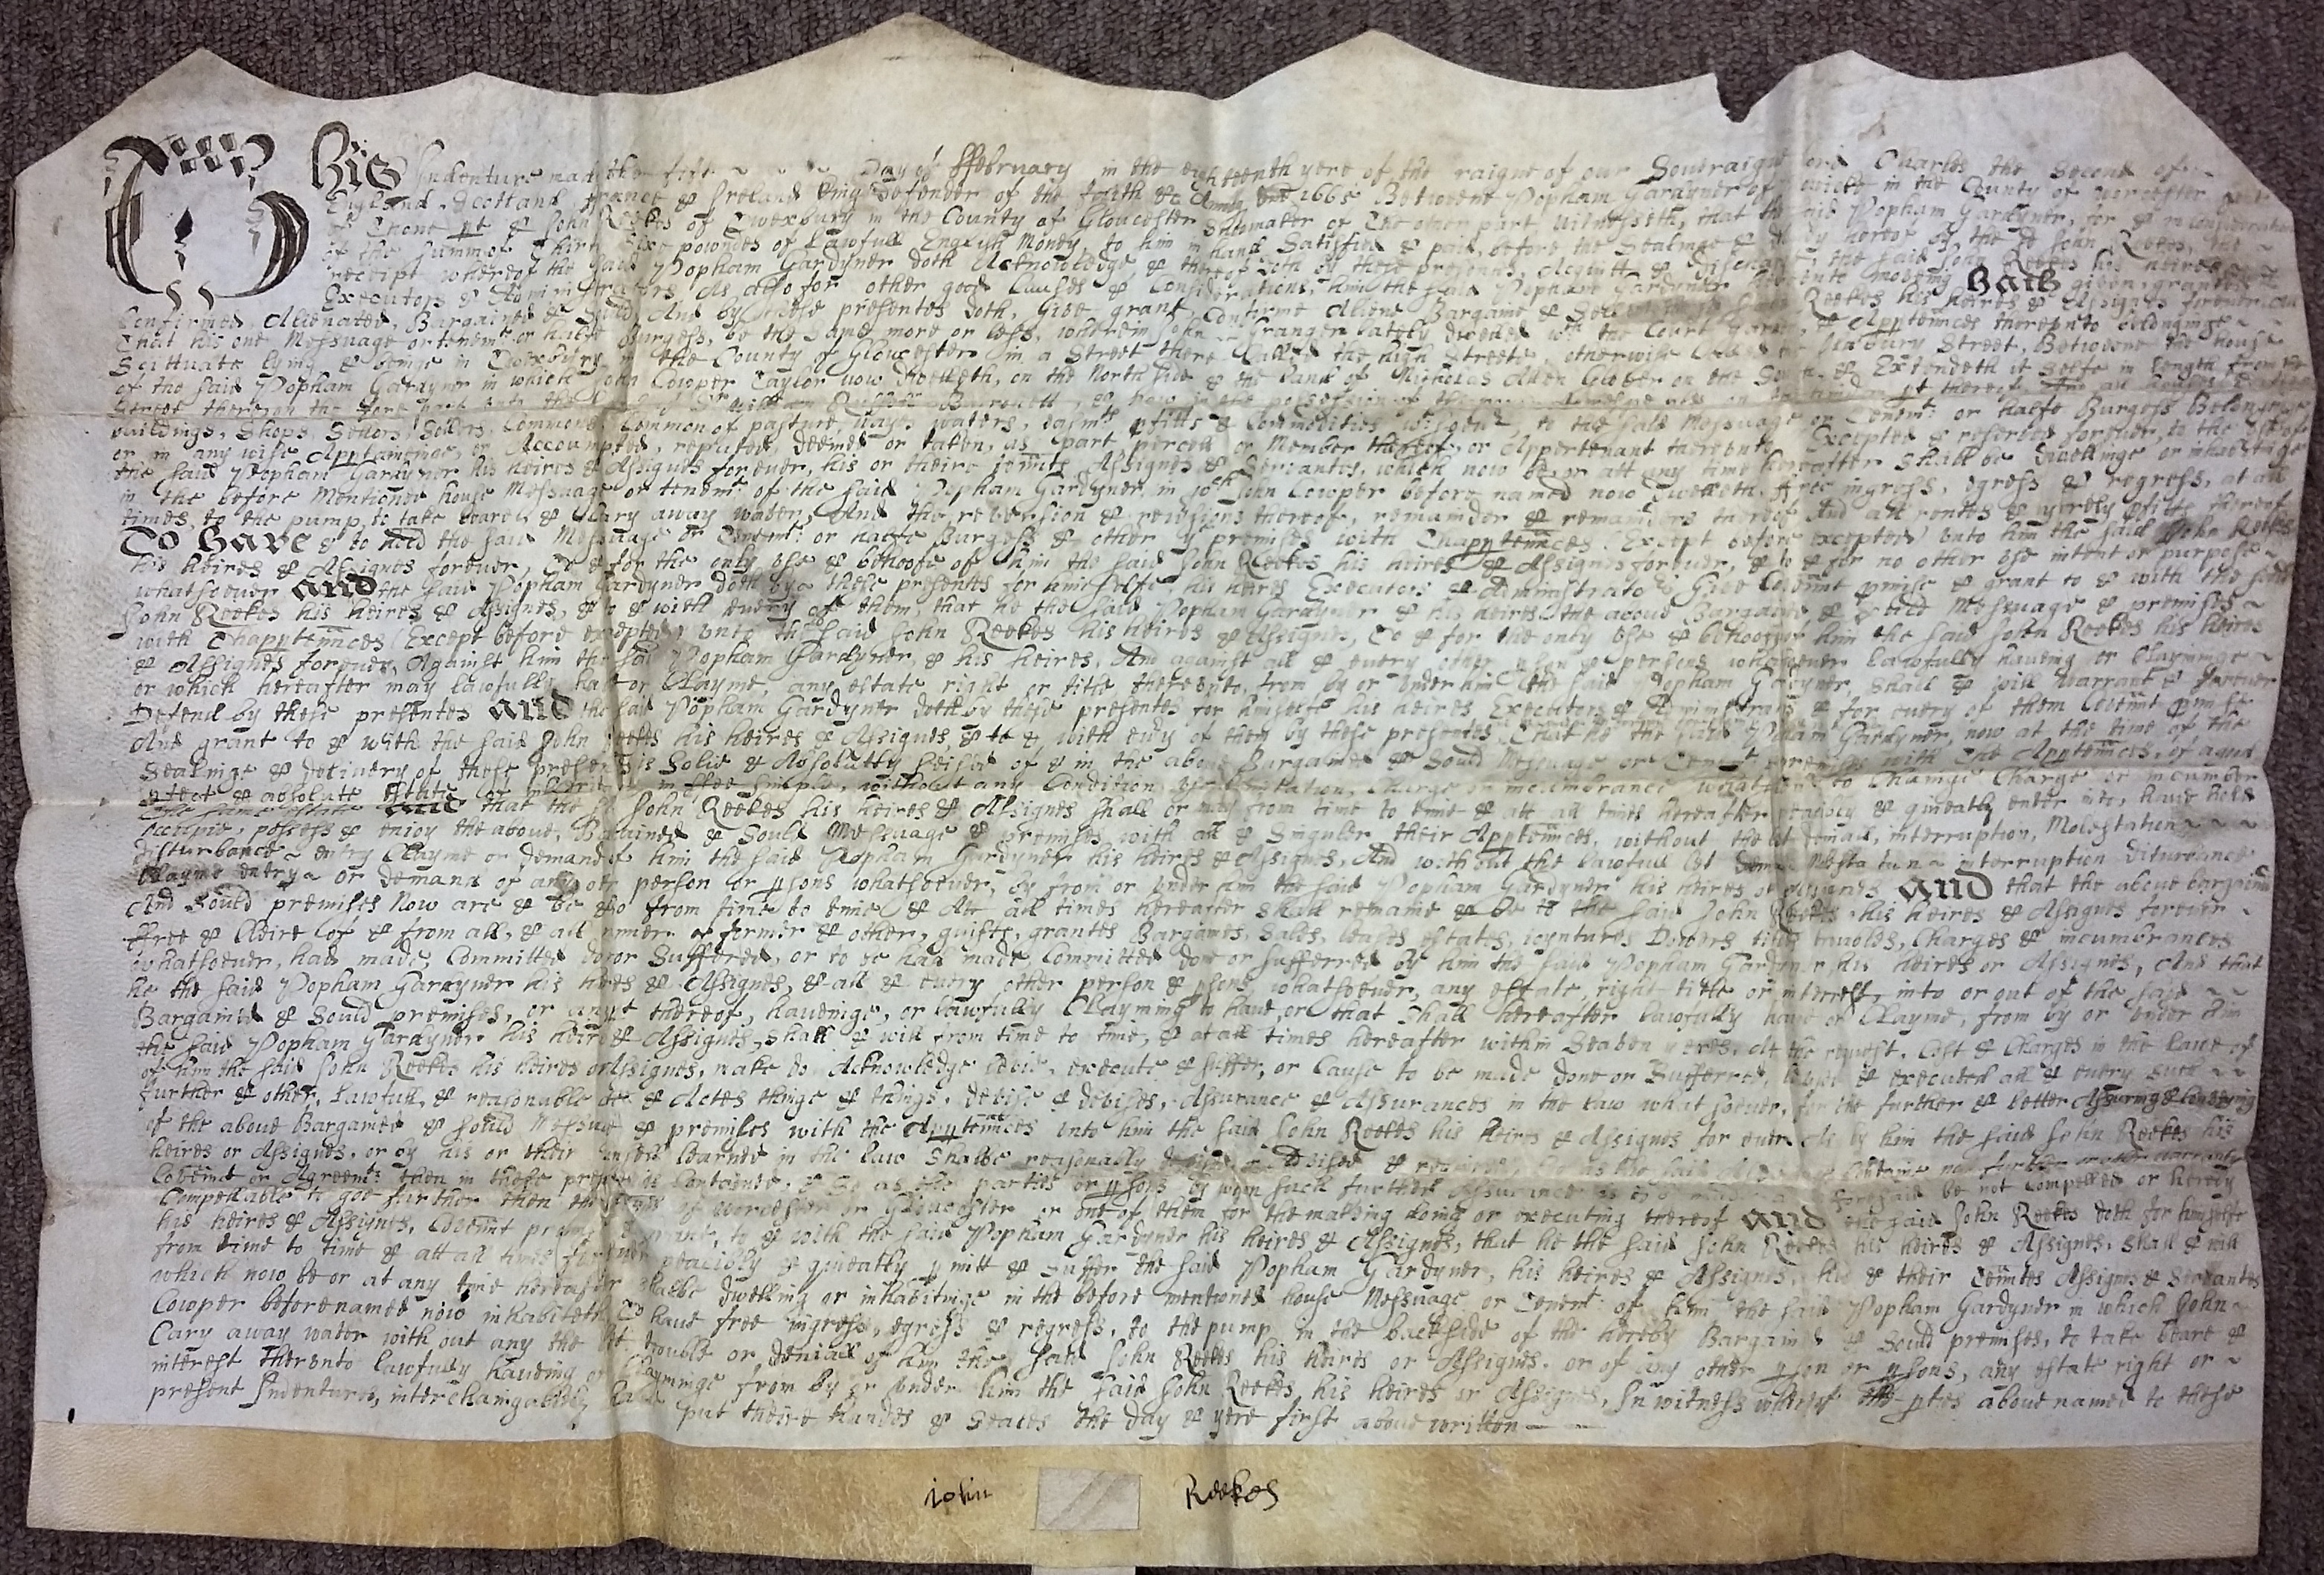 This Indenture made the first Day of ffebruary in the eighteenth yere of the raigne of our Soveraigne lord Charles the Second of
England Scottland ffrance & Ireland King Defender of the faith &c 1665 Betweene Popham Gardyner of in the County of Worcester
of Thone pt & John Reekes of Tewxbury in the County of Gloucester of The other part Witnesseth, that the said Popham Gardyner, for & in consideration
of the summe of Thirty Sixe poundes of Lawfull English Money, to him in hand Satisfied & paid, before the Sealinge & hereof by the sd John Reekes, the
receipt whereof the said Popham Gardyner doth Acknowledge & thereof doth by these presents, Acquitt & Discharge the said John Reekes his heires
Executors & Administrators As also for other good Causes & Considerations, him the said Popham Gardyner moveing Hath given, granted
Confirmed, Alienated, Bargained & Sould And by these presentes doth, Give grant Confirme Aliene Bargaine & Sell Reekes his heires & Assignes forever, All
That his one Messuage or tenemt or halfe Burgess, be the same more or less, wherein John Granger lately dwelled wth the Court Garden & Apptennces thereunto belonginge
Scittuate lying & beinge in Tewxbury in the County of Gloucester in a Street there Called the high Streete, otherwise Called Street, Betweene the house
of the said Popham Gardyner in which John Cowper Taylor now dwelleth, on the North side & the land of Nicholas Allen Glover on the South & Extendeth it selfe in Length from the
Street there on the fore part unto the of William Russell Barronett, & now in the possession of all houses
buildings, Shops, Sellors, Sollers, Commons, Common of pasture, ways waters, easmts pfitts & Commodities to the said Messuage or Tenemt or halfe Burgess Belonginge
or in any wise Appertaininge or Accoumpted, reputed, deemed or taken, as part percell or Member thereof, or Appertenant thereunto Excepted & reserved forever, to the use of
the said Popham Gardyner his heires & Assignes forever, his or theire tennts Assignes & Servantes, which now be, or att any time hereafter shall be dwellinge or inhabitinge
in the before Mentioned house Messuage or tenemt of the said Popham Gardyner in wch John Cowper before named now dwelleth, ffree ingress, egress & regress, at all
times, to the pump, to take beare & Cary away water, And the reversion & revisions thereof, remainder & remainders thereof And all rentes & yerely pfitts thereof
To Have & to hold the said Messuage or Tenemt or halfe Burgess & other ye premises with Thapptennces (Except before excepted) unto him the said John Reekes
his heires & Assignes forever, To & for the only use & behoofe of him the said John Reekes his heires & Assignes forever, & to & for no other use intent or purpose
whatsoever And the said Popham Gardyner doth by these presentes for himselfe, his heires Executors & Administrators Give Covennt pmise & grant to & with the said
John Reekes his heires & Assignes, & to & with every of them, that he the said Popham Gardyner & his heires the above Bargained & Sould Messuage & premises
with Thapptennces (Except before excepted) unto the said John Reekes his heires & Assignes, To & for the only use & behoofe of him the said John Reekes his heires
& Assignes forever, Against him the said Popham Gardyner, & his heires, And against all & every other pson & persons whatsoever lawfully haveing or Clayminge
or which hereafter may lawfully have or Clayme, any estate right or title thereunto, from by or under him the said Popham Gardyner shall & will warrant & forever
Defend by these presentes And the said Popham Gardyner doth by these presentes for himselfe his heires Executors & Administrators & for every of them Covennt pmise
And grant to & with the said John Reekes his heires & Assignes, & to & with every of them by these presentes, That he the said Popham Gardyner, now at the time of the
Sealinge & delivery of these presentes is Solie & Absolutly seised of & in the above Bargained & Sould Messuage or Tenemt premises with the Apptennces, of a good
pfect & absolute Estate of inheritance in ffee simple, without any Condition, use limitation, Charge or incumbrance whatsoever to Change Charge or incumber
the same estate And that the sd John Reekes his heires & Assignes shall or may from time to time & att all times hereafter peacibly & quieatly enter into, have hold
occupie, possess & enjoy the above, Bargained & Sould Messuage & premises with all & Singuler their Apptennces, without the let deniall, interruption, Molestation
disturbance entry Clayme or demand of him the said Popham Gardyner his heires & Assignes, And without the lawfull let interruption disturbance
Clayme entry or demand of any other person or psons whatsoever, by from or under him the said Popham Gardyner his heires or Assignes And that the above bargained
And Sould premises Now are & be & so from time to time & Att all times hereafter shall remaine & be to the said John Reekes his heires & Assignes forever
ffree & Cleire of & from all, & all maner of former & other, guifts, grantes Bargaines, Sales, leases estates, joyntures Dowers titles troubles, Charges & incumbrances
whatsoever, had made, Committed don or Suffered, or to be had made Committed don or sufferred by him the said Popham Gardyner his heires or Assignes, And that
he the said Popham Gardyner his heires & Assignes, & all & every other person & psons whatsoever, any estate, right title or interest, into or out of the said
Bargained & Sould premises, or any pt thereof, haveinge, or lawfully Clayming to have, or that shall hereafter lawfully have or Clayme, from by or under him
the said Popham Gardyner his heires & Assignes, shall & will from time to time, & at all times hereafter within Seaven yeres, At the request, Cost & Charges in the lawe of
of him the said John Reekes his heires or Assignes, make do Acknowledge levie, execute & suffer, or Cause to be made done or Sufferred, levied & executed all & every such
further & other, lawfull & reasonable Act & Actes thinge & things, devise & devises, Assurance & Assurances in the law whatsoever, for the further & better Assuring & Conveying
of the above Bargained & sould Messuage & premises with the Apptennces unto him the said John Reekes his heires & Assignes for ever, As by him the said John Reekes his
heires or Assignes, or by his or their Counsell learned in the law Shalbe reasonably devised or Advised & required, So as the said Assurance Containe no further or other warranty
Covennt or Agreemt then in these presentes is Conteined, & So as the parties or psons by whom such further Assurance is to be made as aforesaid be not Compelled or hereby
Compellable to goe further then the of Worcester or Gloucester or one of them for the making doing or executing thereof And the said John Reekes doth for himselfe
his heires & Assignes, Covennt promise & grant, to & with the said Popham Gardyner his heires & Assignes, that he the said John Reekes his heires & Assignes, shall & will
from time to time & att all times forever peacibly & quieatly pmitt & Suffer the said Popham Gardyner, his heires & Assignes, his & their Tenntes Assignes & Servantes
which now be or at any time hereafter shalbe dwelling or inhabitinge in the before mentioned house Messuage or Tenemt of him the said Popham Gardyner in which John
Cowper beforenamed now inhabiteth To have free ingress, egress & regress, to the pump in the backside of the hereby Bargained & Sould premises, to take beare &
Cary away water with out any the let trouble or deniall of him the said John Reekes his heires or Assignes, or of any other pson or psons, any estate right or
interest thereunto lawfully haveing or Clayminge from by or under him the said John Reekes, his heires or Assignes, In witness whereof the pties above named to these
present Indentures, interchaingablely have put theire handes & Seales the day & yere first above written
iohn Reekes